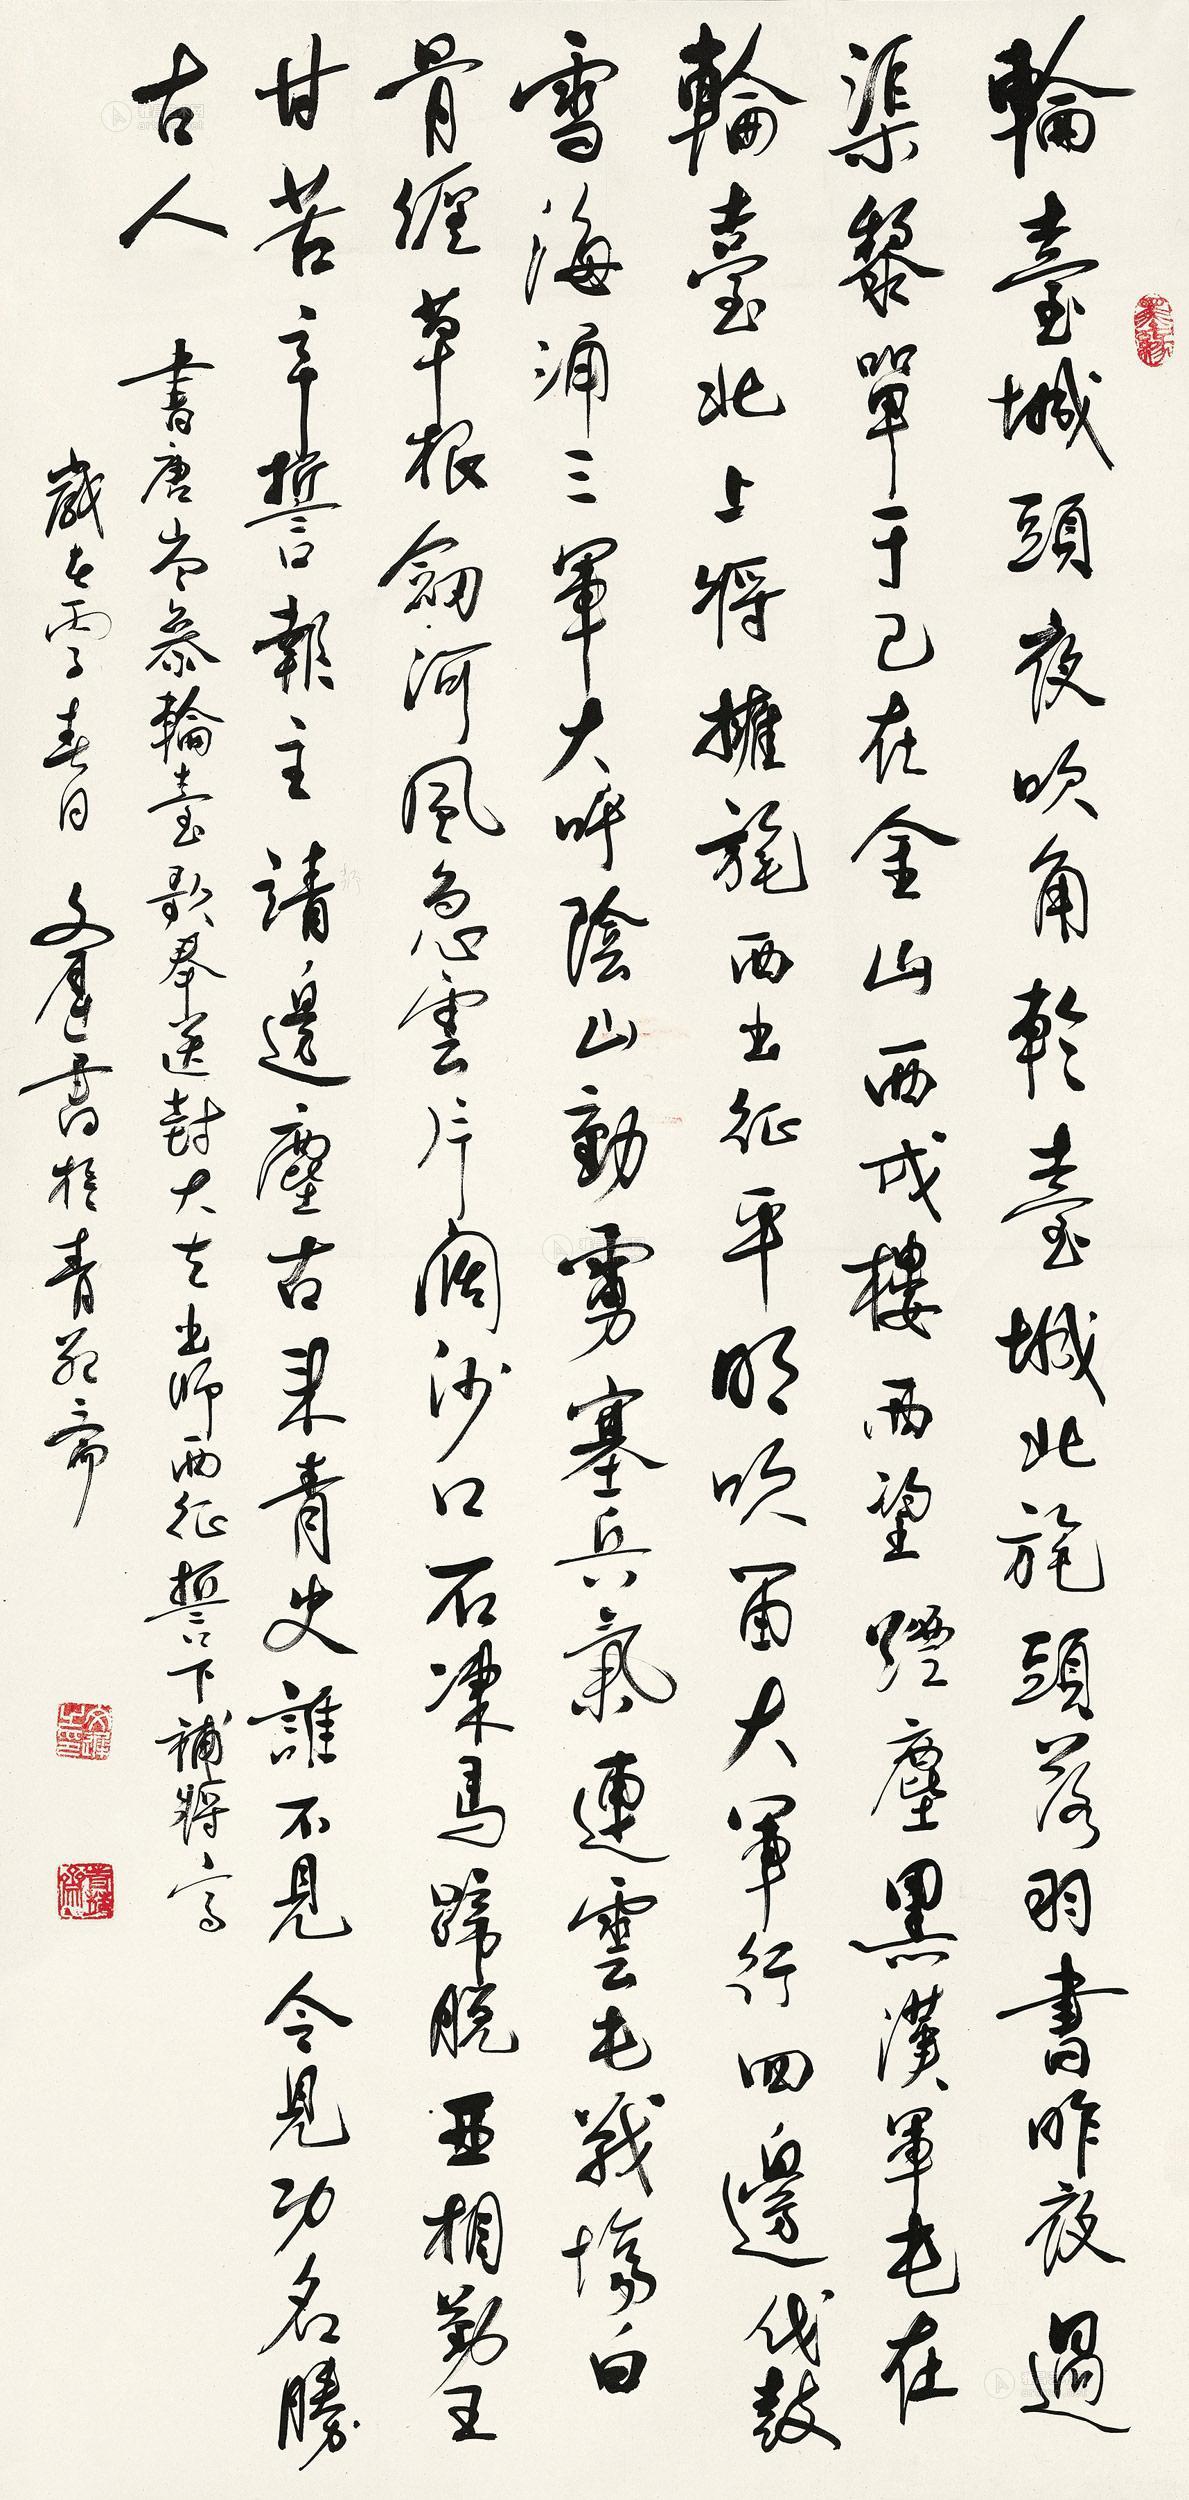 輪臺城頭夜吹角輪臺城北旄頭落羽書昨夜過
渠黎單于已在金山西戍樓西望煙塵黑漢軍屯在
輪臺北上將擁旄西出征平明吹笛大軍行四邊伐鼓
雪海涌三軍大呼陰山動虜塞兵氣連雲屯戰場白
骨纏草根劍河風急雲片闊沙口石凍馬蹄脫亞相勤王
甘苦辛誓報主靖邊塵古來青史誰不見今見功名勝
古人
書唐岑參輪臺歌奉送封大夫出師西征誓下補將字
歲在雪春日 文 書於青 齋